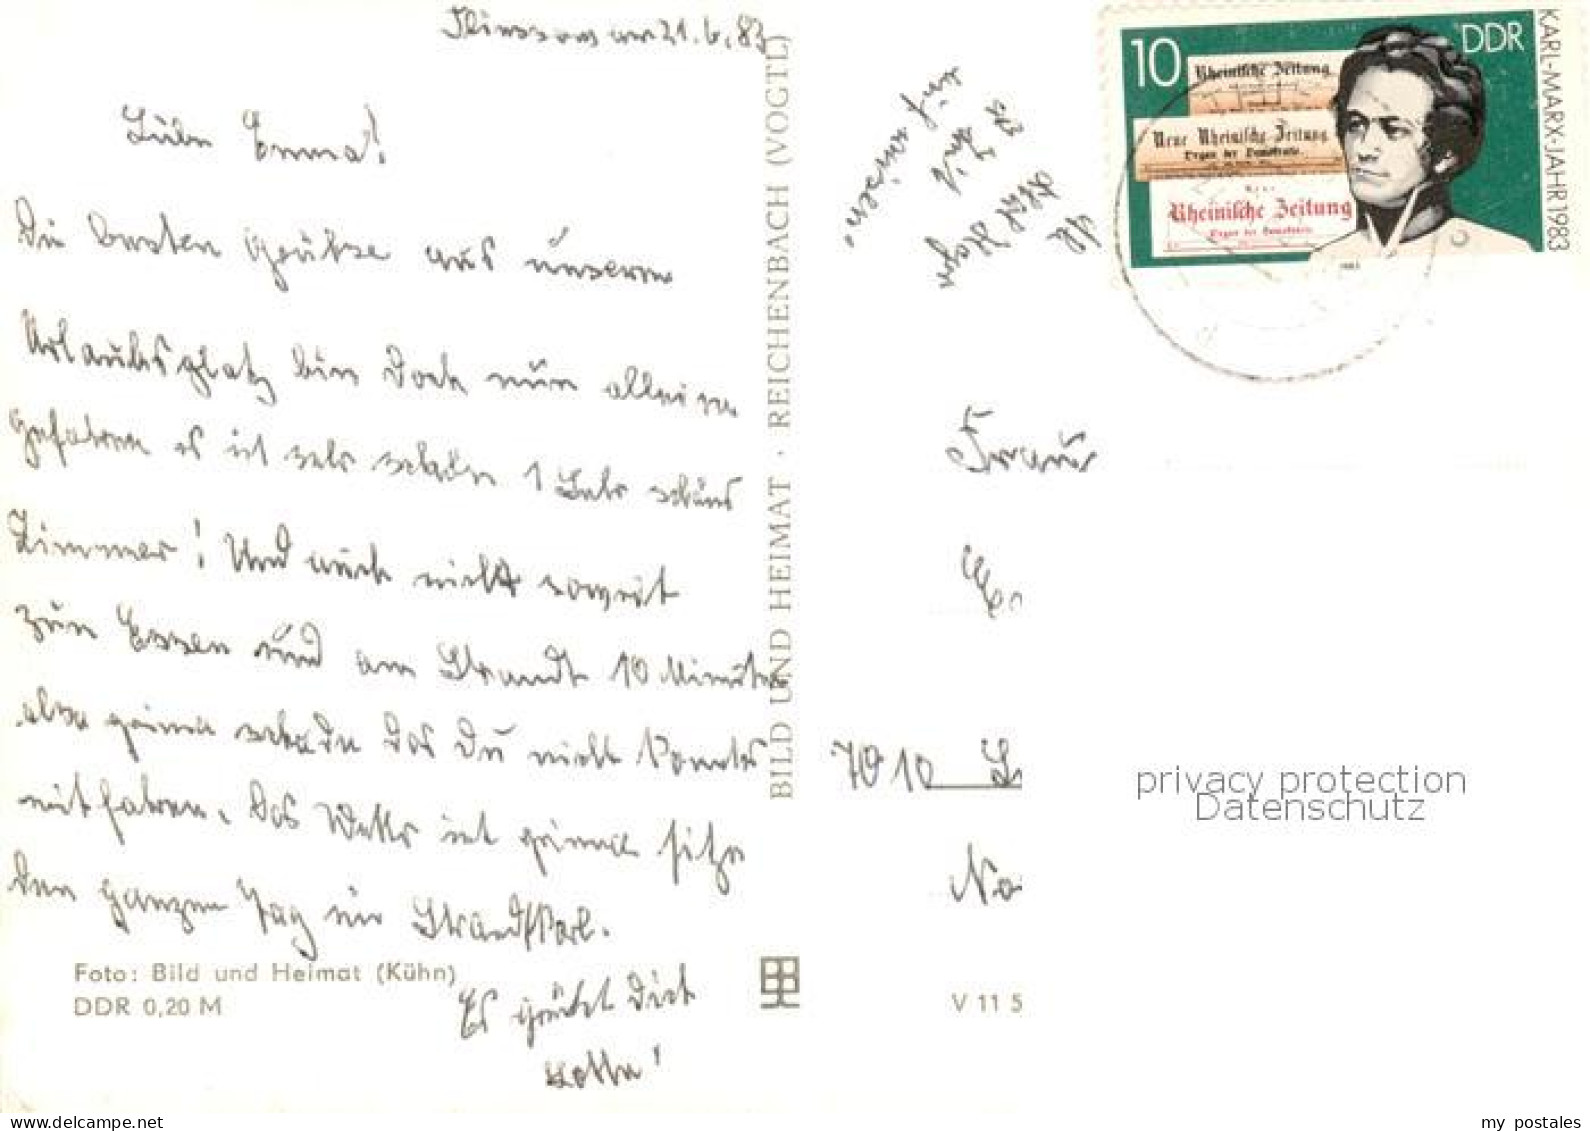 am 21.6.83
Liebe Emma!
Die besten Grüße aus unserm
Urlaubsplatz bin doch nun allein
gefahren es ist sehr schön 1 sehr schönes
Zimmer! Und auch nicht soweit
zum Essen und am Strandt 10 Minuten
also prima schade das Du nicht konntes
mitfahren. Das Wetter ist prima sitze
den ganzen Tag im Strandkorb.
Es grüßt Dich
Foto: Bild und Heimat (Kühn)
DDR 0,20 M
BILD UND HEIMAT · REICHENBACH (VOGTL)
V 11 5
10
DDR
KARL-MARX-JAHR 1983
Rheinische Zeitung
Neue Rheinische Zeitung
Organ der Demokratie
Neue
Rheinische Zeitung
Organ der Demokratie
1983
Frau
7010
No
privacy protection
Datenschutz
my postales
www.delcampe.net